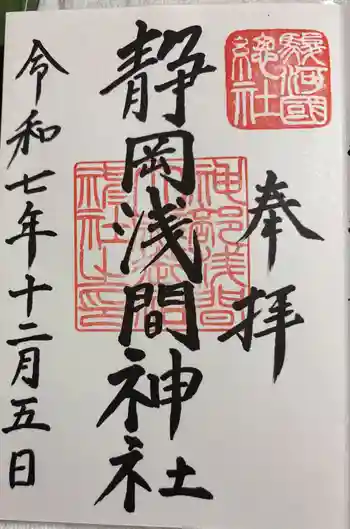 駿河國
總社
奉拝
静岡浅間神社
令和七年十二月五日